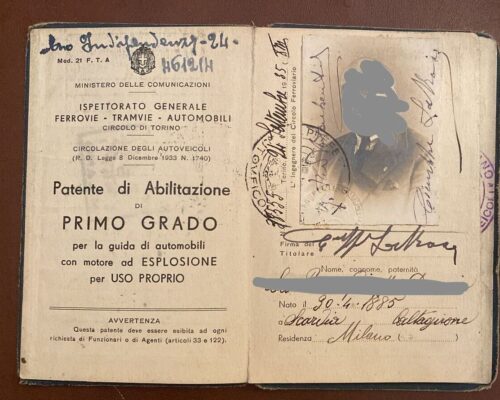 Indipendenza - 24 -
Mod. 21 F. T. A
4612/4
MINISTERO DELLE COMUNICAZIONI
ISPETTORATO GENERALE
FERROVIE - TRAMVIE - AUTOMOBILI
CIRCOLO DI TORINO
CIRCOLAZIONE DEGLI AUTOVEICOLI
(R. D. Legge 8 Dicembre 1933 N. 1740)
Patente di Abilitazione
DI
PRIMO GRADO
per la guida di automobili
con motore ad ESPLOSIONE
per USO PROPRIO
AVVERTENZA
Questa patente deve essere esibita ad ogni
richiesta di Funzionari o di Agenti (articoli 33 e 122).
Torino,
L'Ingegnere del Circolo Ferroviario
Firma del
Titolare
Nome, cognome, paternità
Nato il 30-4-1885
a Caltagirone
Residenza Milano ( )